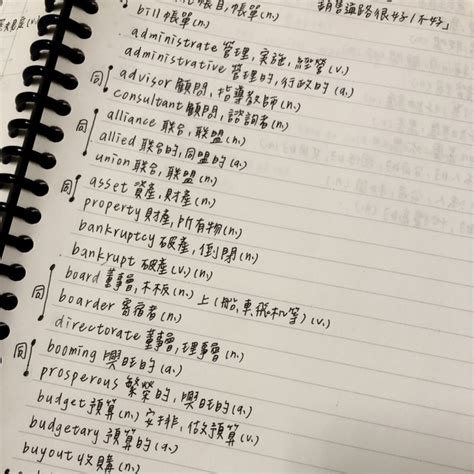 帳目,帳單(n.)
銷售通路很好/不好」
bill 帳單(n.)
administrate 管理,實施,經營(v.)
administrative 管理的,行政的(a.)
同 advisor 顧問,指導教師(n.)
consultant 顧問,諮詢者(n.)
同 alliance 聯合,聯盟(n.)
allied 聯合的,同盟的(a.)
union 聯合,聯盟(n.)
同 asset 資產,財產(n.)
property 財產,所有物(n.)
bankruptcy 破產,倒閉(n.)
bankrupt 破產(v.)(n.)
同 board 董事會,木板(n.) 上(船,車,飛机等)(v.)
boarder 寄宿者(n.)
directorate 董事會,理事會(n.)
同 booming 興旺的(a.)
prosperous 繁榮的,興旺的(a.)
budget 預算(n.) 安排,做預算(v.)
budgetary 預算的(a.)
buyout 收購(n.)